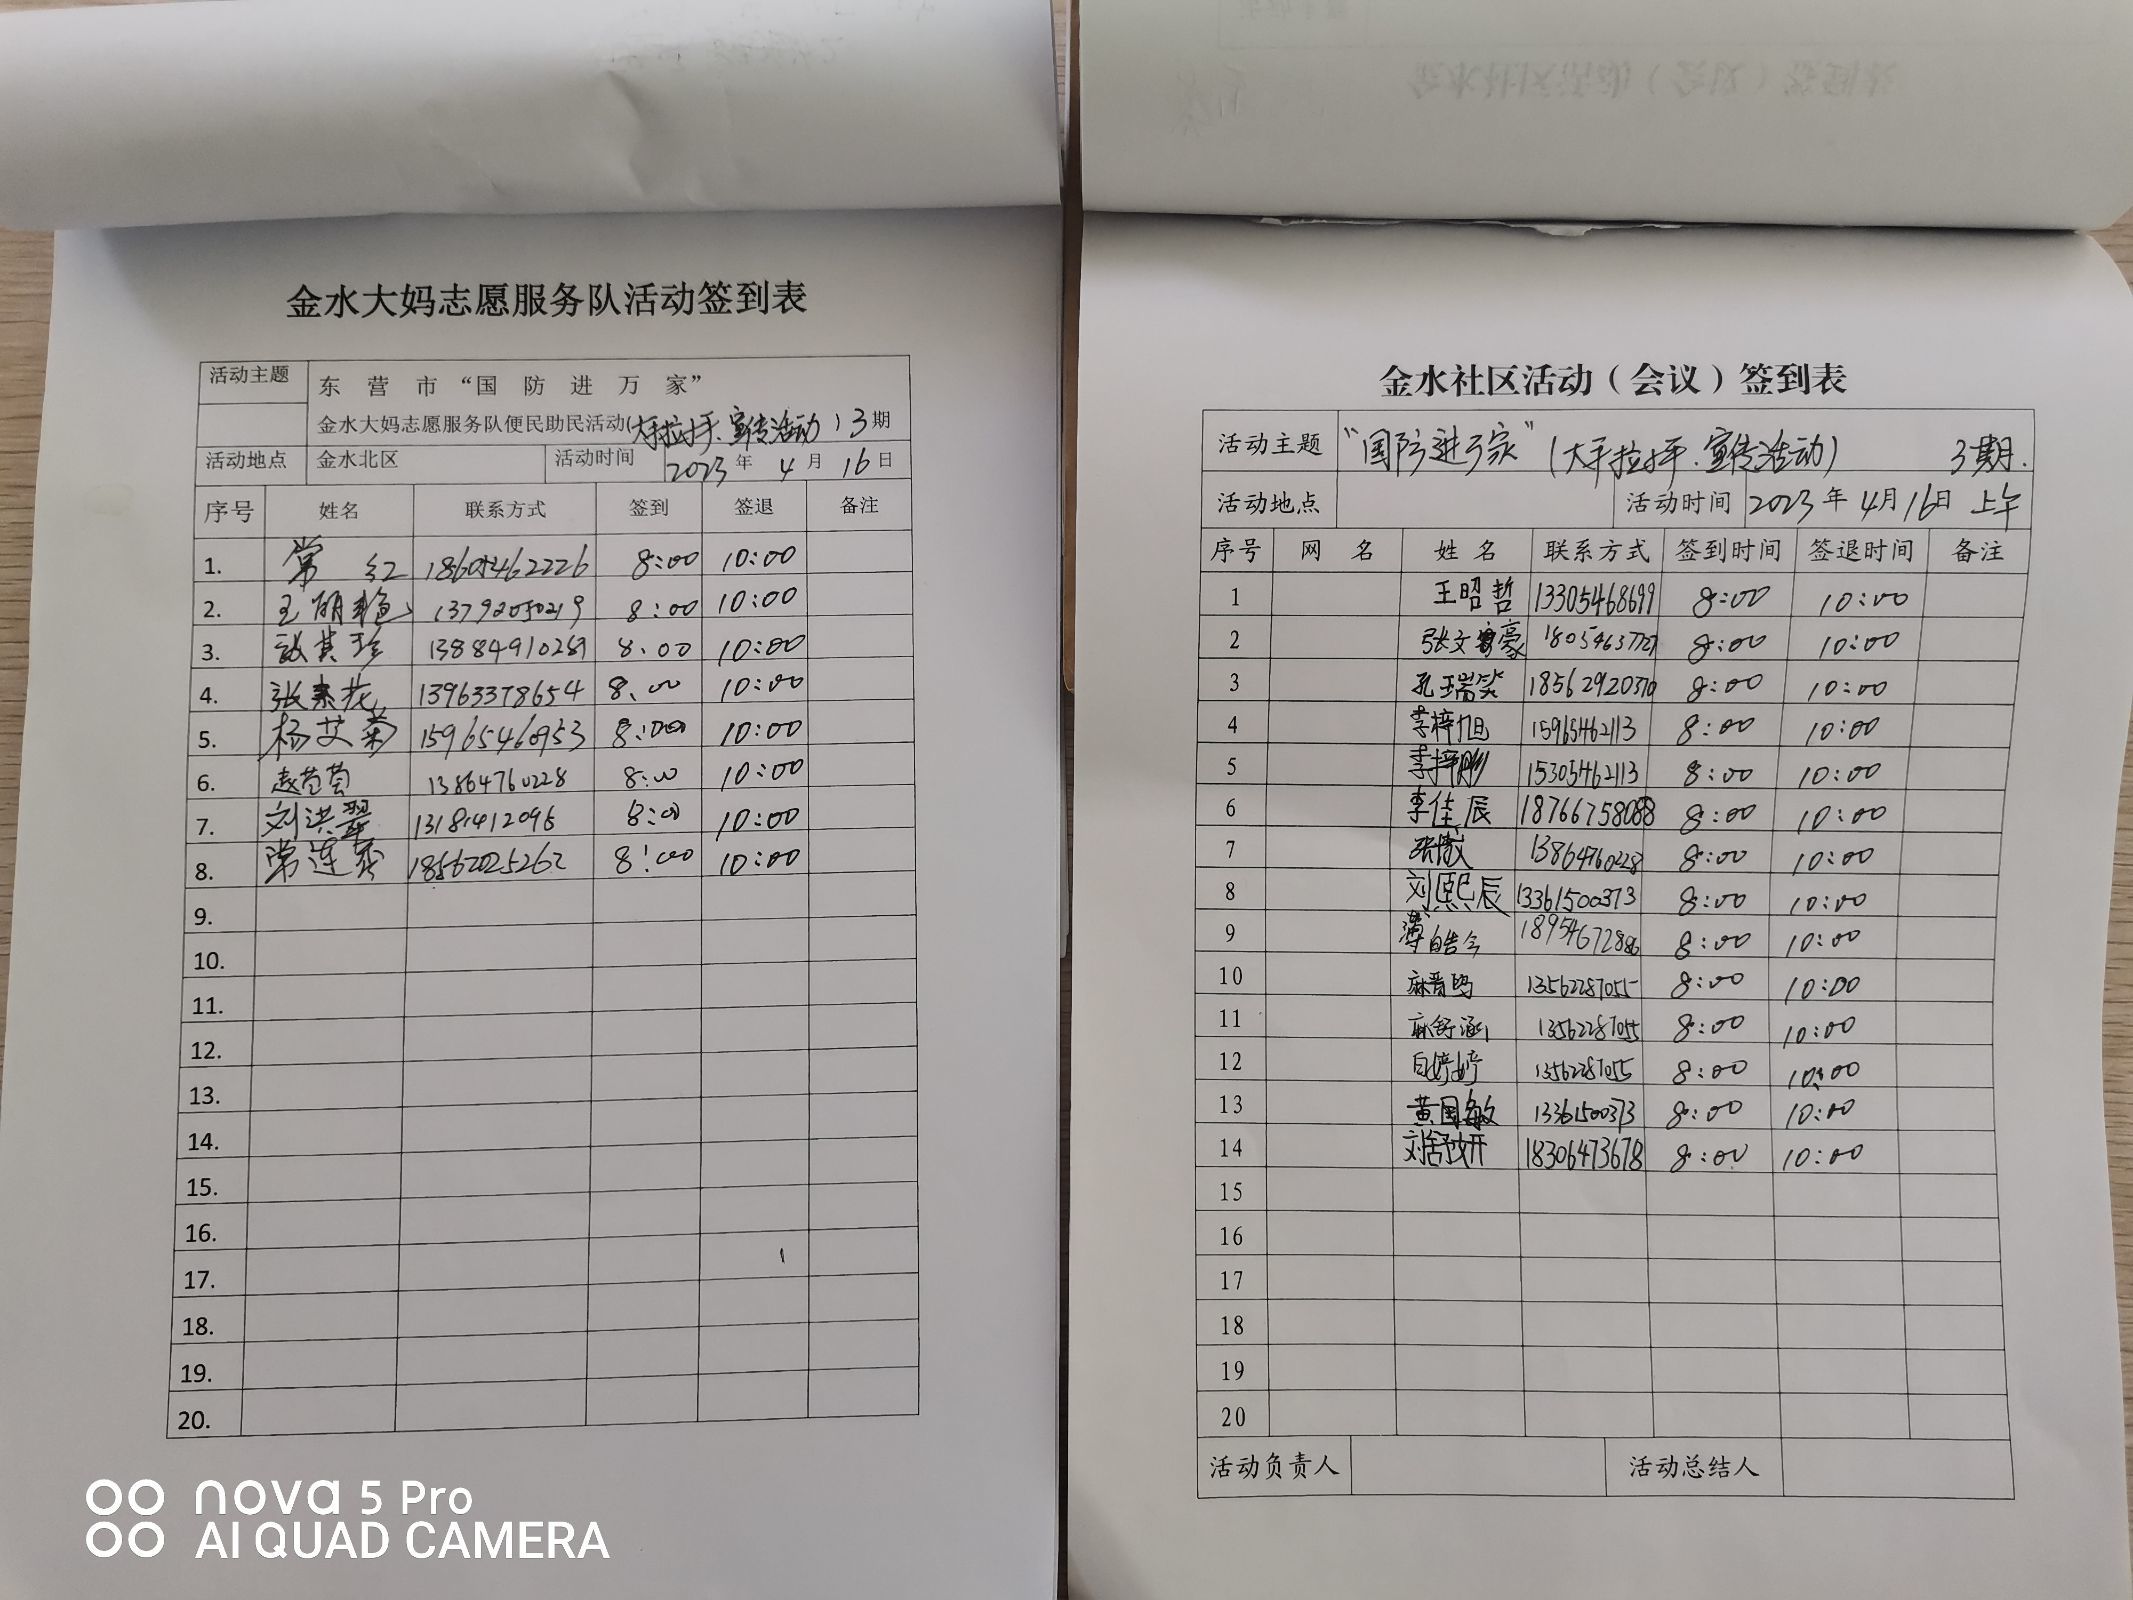 金水大妈志愿服务队活动签到表
活动主题 东营市“国防进万家”
金水大妈志愿服务队便民助民活动(大手拉小手、宣传活动)3期
活动地点 金水北区 活动时间 2023年4月16日
序号 姓名 联系方式 签到 签退 备注
1. 常红 18605462226 8:00 10:00
2. 王丽艳 13792050219 8:00 10:00
3. 其珍 13884910289 8:00 10:00
4. 张素花 13963378654 8:00 10:00
5. 杨艾菊 15965460953 8:00 10:00
6. 赵苔苔 13864760228 8:00 10:00
7. 刘洪翠 13181412096 8:00 10:00
8. 常连秀 18562025262 8:00 10:00
9.
10.
11.
12.
13.
14.
15.
16.
17.
18.
19.
20.
nova 5 Pro
AI QUAD CAMERA
金水社区活动（会议）签到表
活动主题 “国防进万家”(大手拉小手、宣传活动) 3期.
活动地点 活动时间 2023年4月16日 上午
序号 网名 姓名 联系方式 签到时间 签退时间 备注
1 王昭哲 13305468699 8:00 10:00
2 张文豪 18054637727 8:00 10:00
3 孔瑞笑 18562920370 8:00 10:00
4 李梓旭 15965462113 8:00 10:00
5 李梓彤 15305462113 8:00 10:00
6 李佳辰 18766758088 8:00 10:00
7 张傲 13864760228 8:00 10:00
8 刘熙辰 13361500373 8:00 10:00
9 薄皓今 18954672886 8:00 10:00
10 麻晋鸣 13562287055 8:00 10:00
11 麻舒涵 13562287055 8:00 10:00
12 白婷婷 13562287055 8:00 10:00
13 黄国敏 13361500373 8:00 10:00
14 刘舒妍 18306473678 8:00 10:00
15
16
17
18
19
20
活动负责人 活动总结人